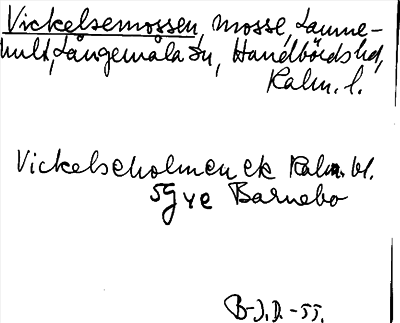 Vickelsemossen, mosse, Lanne-
hult, Långemåla sn, Handbörds hd,
Kalm. l.
Vickelseholmen ek Kalm. bl.
5G ve Barnebo
B-J.D.-55.